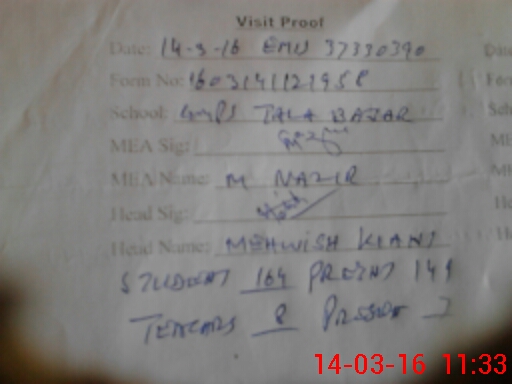 Visit Proof
Date: 14-3-16 EMIS 37330390
Form No: 1603141121958
School: GMPS TALA BAZAR
MEA Sig:
MEA Name: M NAZIR
Head Sig:
Head Name: MEHWISH KIANI
STUDENT 164 PRESENT 149
TEACHERS 8 PRESENT 7
14-03-16 11:33